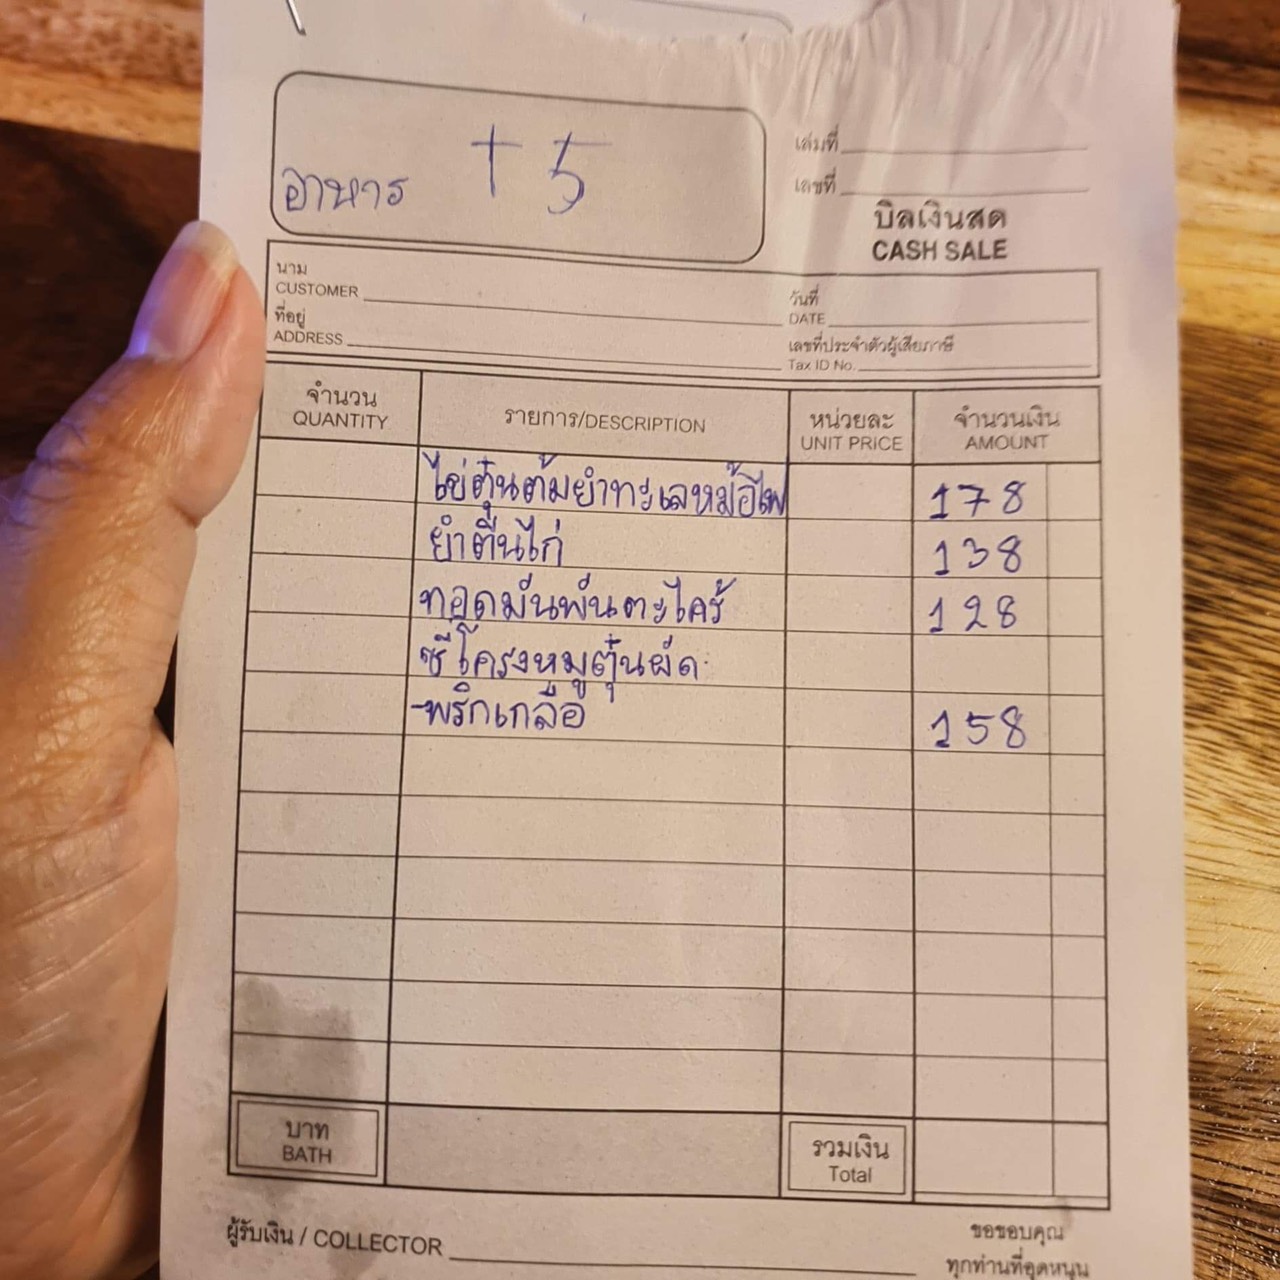 อาหาร T5
เล่มที่
เลขที่
บิลเงินสด
CASH SALE
นาม
CUSTOMER
ที่อยู่
ADDRESS
วันที่
DATE
เลขที่ประจำตัวผู้เสียภาษี
Tax ID No.
จำนวน
QUANTITY
รายการ/DESCRIPTION
หน่วยละ
UNIT PRICE
จำนวนเงิน
AMOUNT
ไข่ตุ๋นต้มยำทะเลหม้อไฟ 178
ยำตีนไก่ 138
ทอดมันพันตะไคร้ 128
ซี่โครงหมูตุ๋นผัด
-พริกเกลือ 158
บาท
BATH
รวมเงิน
Total
ผู้รับเงิน / COLLECTOR
ขอขอบคุณ
ทุกท่านที่อุดหนุน